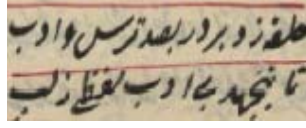 حلقه زد بر در بصد ترس و ادب
تا بنجهد بی ادب لفظی ز لب